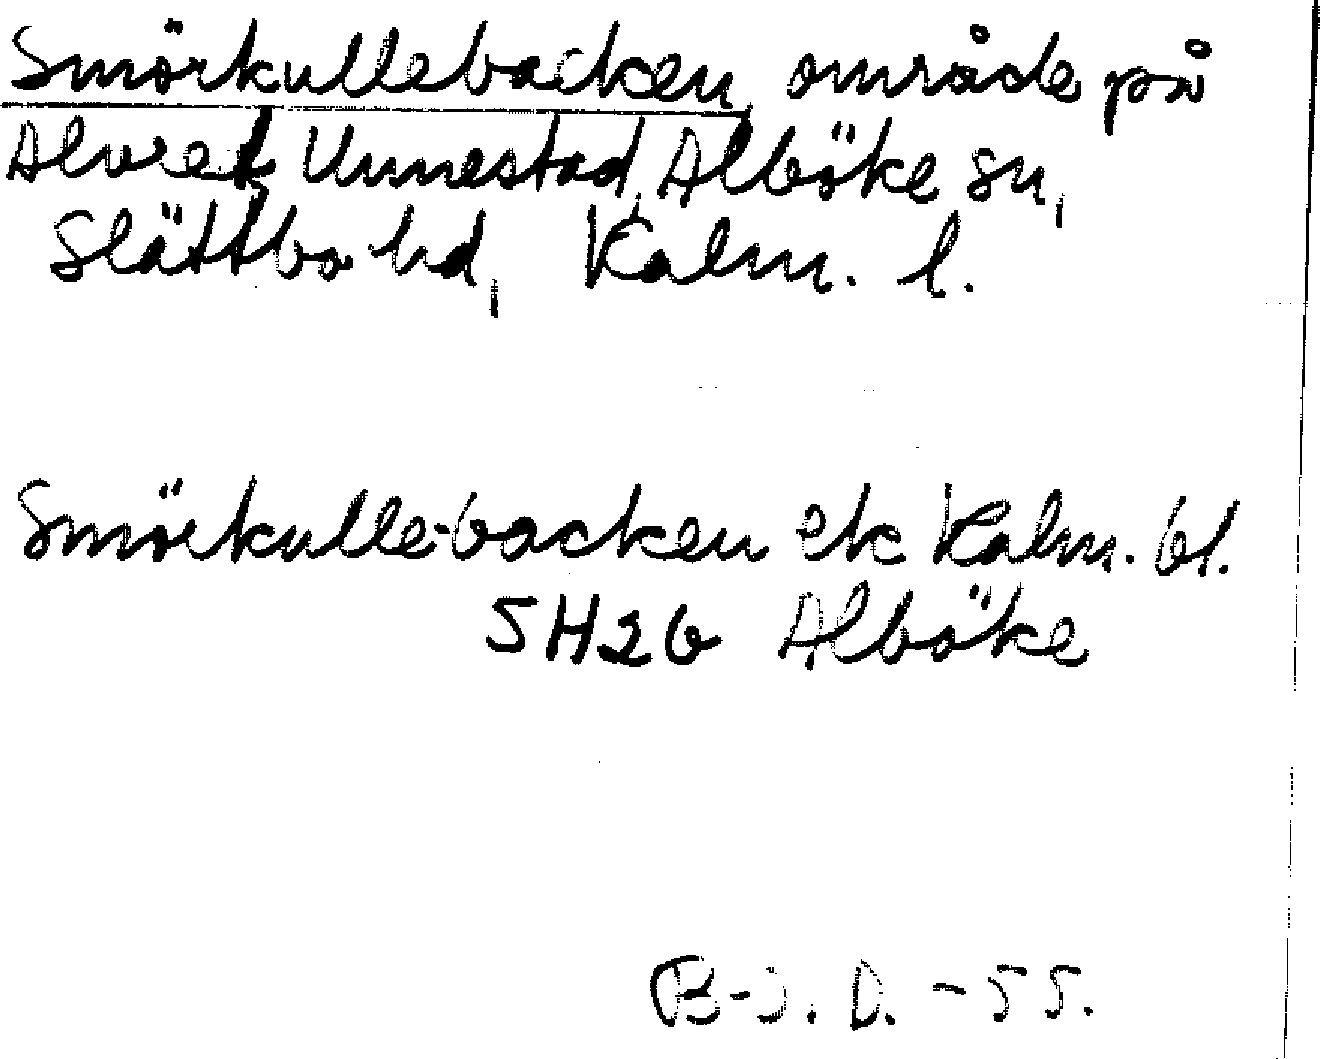 Smörkullebacken, område på
Alvret, Unnestad, Alböke sn,
Slättbo hd, Kalm. l.
Smörkulle-backen ek Kalm. bl.
5H2b Alböke
B-J. D. -55.